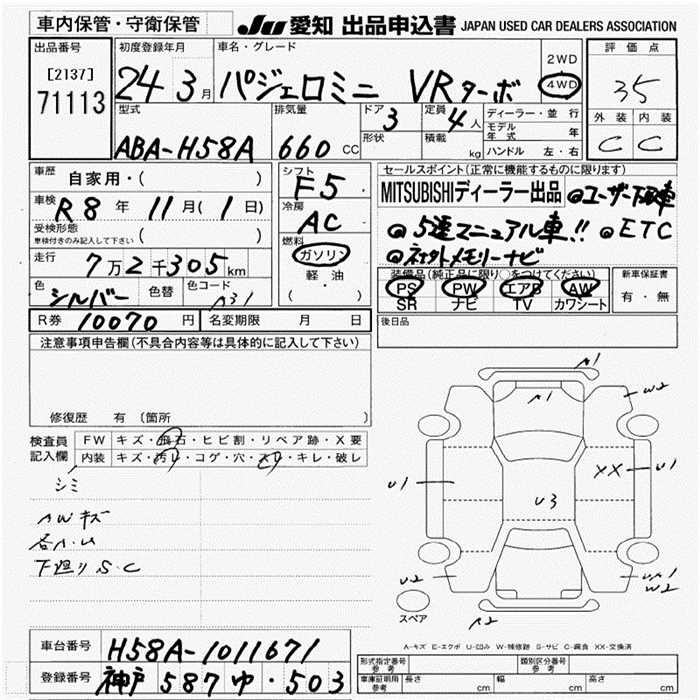 車内保管・守衛保管
JU 愛知 出品申込書 JAPAN USED CAR DEALERS ASSOCIATION
出品番号
[2137]
71113
初度登録年月
24 3月
車名・グレード
パジェロミニ VRターボ
2WD
4WD
評価点
35
外装 内装
C C
型式
ABA-H58A
排気量
660 CC
ドア 3
形状
定員 4 人
積載 kg
ディーラー・並行
モデル年式 年
ハンドル 左・右
車歴 自家用・( )
車検 R8 年 11月(1日)
受検形態
車検付きのみ記入して下さい ( )
走行 7万2千305km
色 シルバー 色替 色コード A31
R券 10070 円 名変期限 月 日
シフト F5
冷房 AC
燃料
ガソリン
軽油
( ・ )
セールスポイント(正常に機能するものに限ります)
MITSUBISHIディーラー出品 ◎ユーザー下取車
◎5速マニュアル車!! ◎ETC
◎ネオオトメモリーナビ
装備品(純正品に限り○をつけてください)
PS PW エアB AW
SR ナビ TV カワシート
新車保証書
有・無
後日品
注意事項申告欄(不具合内容等は具体的に記入して下さい)
修復歴 有(箇所 )
検査員記入欄
FW キズ・飛石・ヒビ割・リペア跡・X要
内装 キズ・汚レ・コゲ・穴・スレ・キレ・破レ
シミ
AWキズ
各A.U
下廻りS.C
A1
A1
W2
U1
XX
U1
U3
U2
UA1
W2
A2
スペア
A-キズ E-エクボ U-凹み W-補修跡 S-サビ C-腐食 XX-交換済
車台番号 H58A-1011671
登録番号 神戸 587 ゆ・503
形式指定番号 参考
類別区分番号 参考
車庫証明用参考 長さ cm 幅 cm 高さ cm